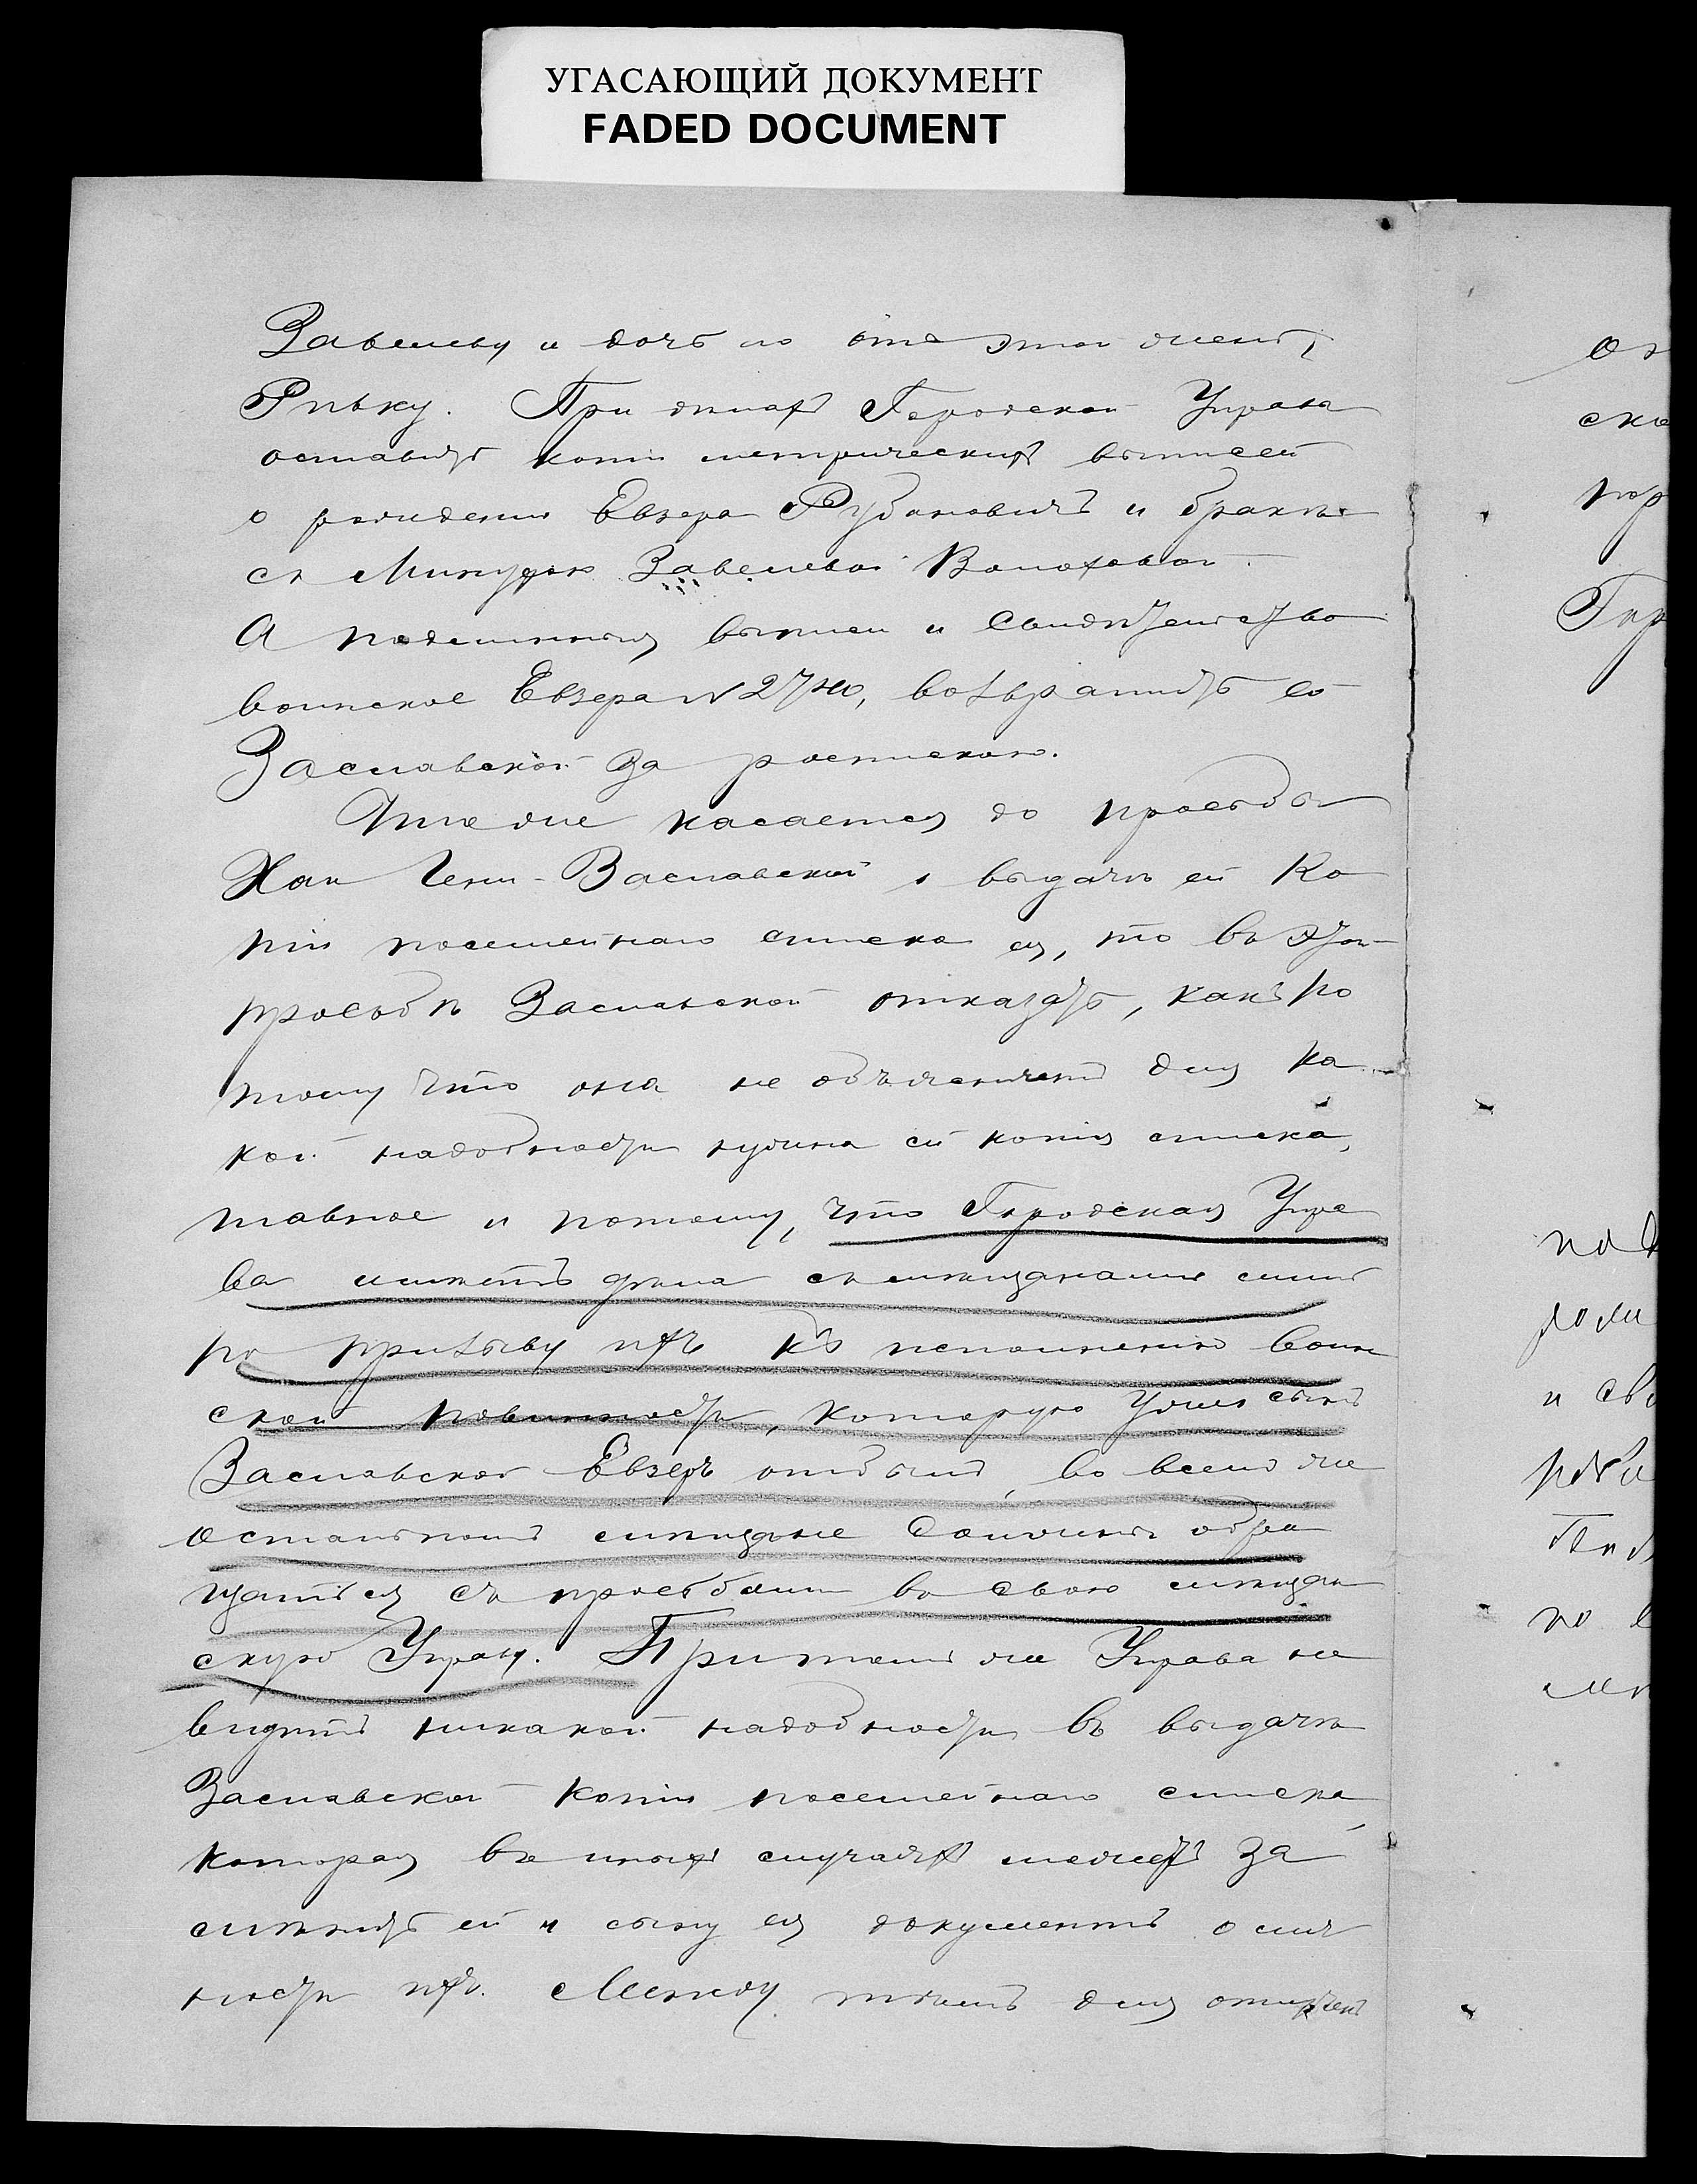 УГАСАЮЩИЙ ДОКУМЕНТ
FADED DOCUMENT
Завелеву и дочь его отъ этой жены,
Ривку. При дѣлахъ Городской Управы
оставить копіи метрическихъ выписей
о рожденіи Евзера Рубановичъ и бракѣ
съ Завелевой
А подлинныя выписи и Свидѣтельство
воинское Евзера № 2740, возвратить ей
Заславской за роспискою.
Что же касается до просьбы
Хаи Заславской о выдачѣ ей Ко
піи посемейнаго списка ея, то въ этой
просьбѣ Заславской отказать, какъ по
тому что она не объясняетъ для ка
кой надобности нужна ей копія списка,
главное и потому, что Городская Упра
ва имѣетъ дѣла съ мѣщанами лишь
по призыву ихъ къ исполненію воин
ской повинности, которую уже сынъ
Заславской Евзеръ отбылъ, во всемъ же
остальномъ мѣщане должны обра
щаться съ просьбами въ свою мѣщан
скую Управу. Притомъ же Управа не
видитъ никакой надобности въ выдачѣ
Заславской копіи посемейнаго списка
которая въ иныхъ случаяхъ можетъ за
мѣнить ей и сыну ея документъ о лич
ности ихъ. Между тѣмъ для